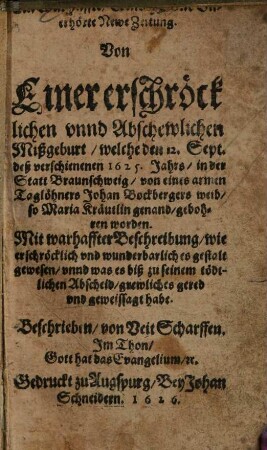 erhörte Newe Zeitung.
Von
Einer erschröck
lichen vnnd Abschewlichen
Mißgeburt / welche den 12. Sept.
deß verschienenen 1625. Jahrs / in der
Statt Braunschweig / von eines armen
Taglöhners Johan Bockbergers weib /
so Maria Kräutlin genand / geboh-
ren worden.
Mit warhaffter Beschreibung / wie
erschröcklich vnd wunderbarlich es gestalt
gewesen / vnnd was es biß zu seinem tödt-
lichen Abscheid / grewliches gered
vnd geweissagt habe.
Beschrieben / von Veit Scharffen.
Im Thon /
Gott hat das Evangelium / ꝛc.
Gedruckt zu Augspurg / Bey Johan
Schneidern. 1626.